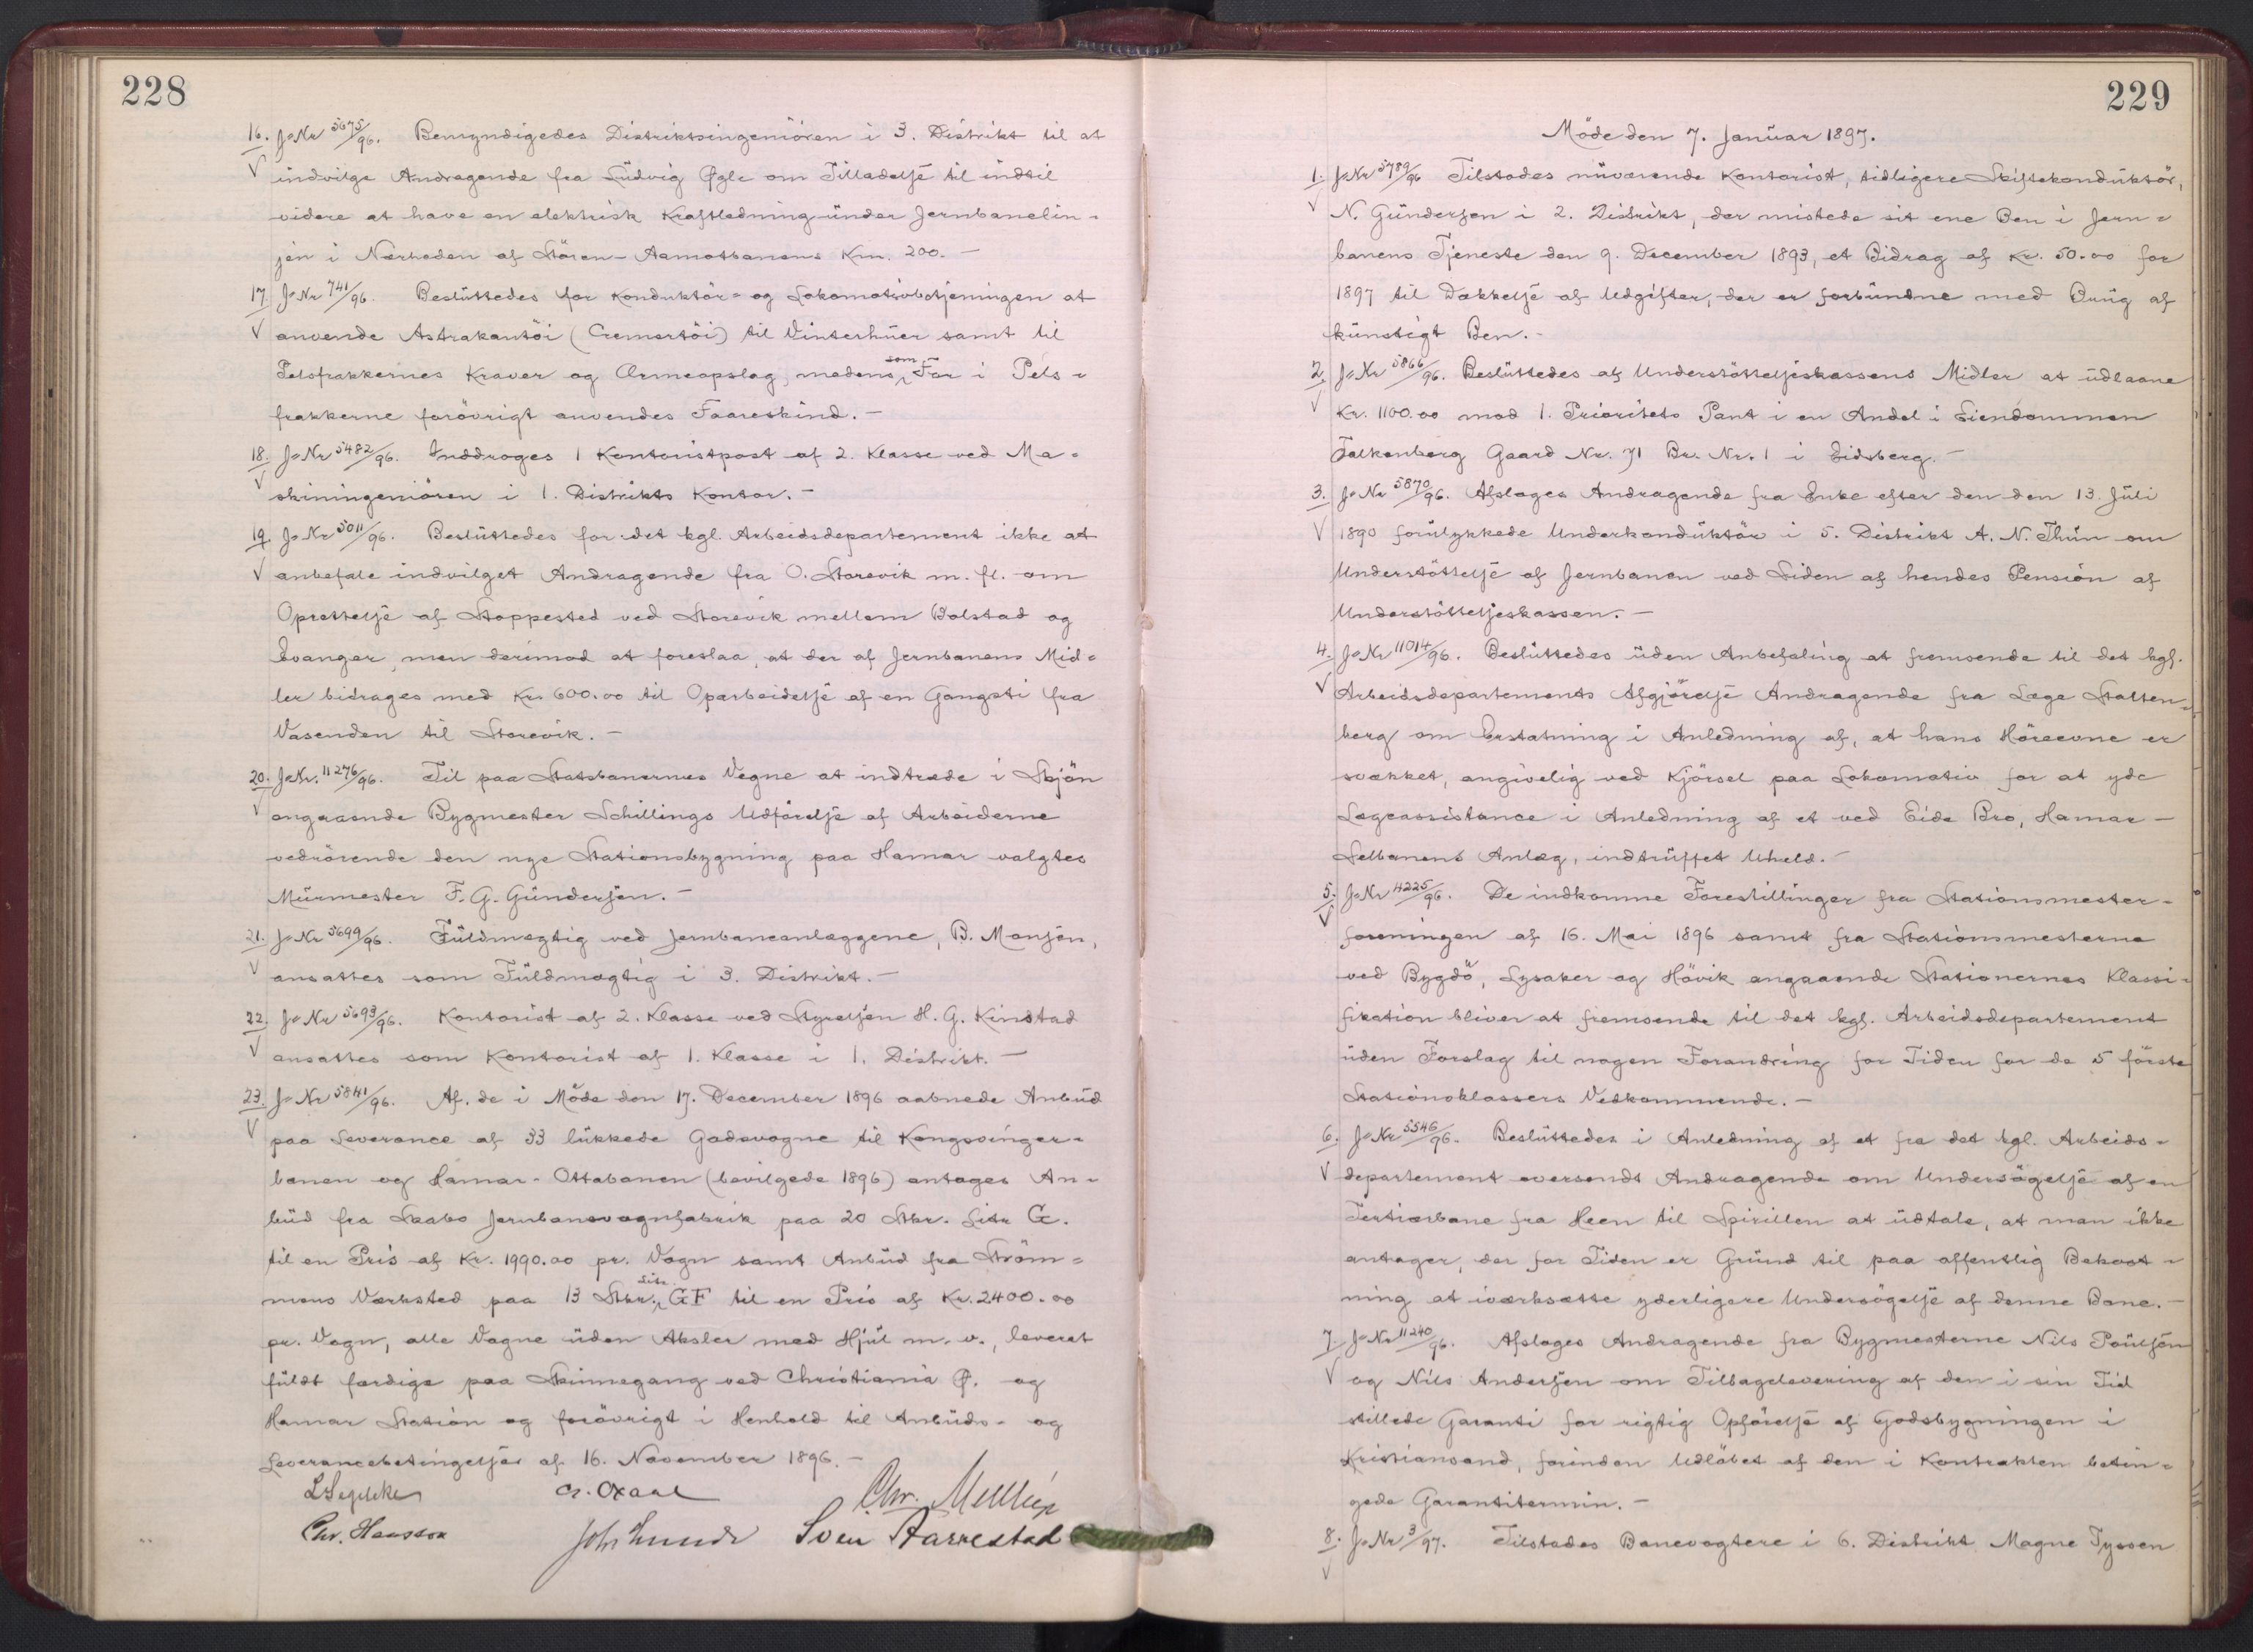 228
16. J=Nr 5675/96. Bemyndigedes Distriktsingeniören i 3. Distrikt til at
V indvilge Andragende fra Ludvig Øgle om Tilladelse til indtil
videre at have en elektrisk Kraftledning under Jernbanelin=
jen i Nærheden af Stören-Aamotbanens Km. 200. —
17. J=Nr 741/96. Besluttedes for Konduktör= og Lokomotivbetjeningen at
V anvende Astrakantöi (Cremertöi) til Vinterhuer samt til
Pelsfrakkernes Kraver og Ærmeopslag, medens som For i Pels=
frakkerne forövrigt anvendes Faareskind. —
18. J=Nr 5482/96. Inddroges 1 Kontoristpost af 2. Klasse ved Ma=
V skiningeniören i 1. Distrikts Kontor. —
19. J=Nr 5011/96. Besluttedes for det kgl. Arbeidsdepartement ikke at
V anbefale indvilget Andragende fra O. Storevik m. fl. om
Oprettelse af Stoppested ved Storevik mellem Bolstad og
Evanger, men derimod at foreslaa, at der af Jernbanens Mid=
ler bidrages med Kr. 600.00 til Oparbeidelse af en Gangsti fra
Vasenden til Storevik. —
20. J=Nr. 11276/96. Til paa Statsbanernes Vegne at indtræde i Skjön
V angaaende Bygmester Schillings Udförelse af Arbeiderne
vedrörende den nye Stationsbygning paa Hamar valgtes
Murmester F. G. Gundersen. —
21. J=Nr 5699/96. Fuldmægtig ved Jernbaneanlæggene, B. Monsen,
V ansattes som Fuldmægtig i 3. Distrikt. —
22. J=Nr 5693/96. Kontorist af 2. Klasse ved Styrelsen H. G. Kinstad
V ansattes som Kontorist af 1. Klasse i 1. Distrikt. —
23. J=Nr 5841/96. Af de i Möde den 17. December 1896 aabnede Anbud
V paa Leverance af 33 lukkede Godsvogne til Kongsvinger=
banen og Hamar-Ottabanen (bevilgede 1896) antages An=
bud fra Skabo Jernbanevognfabrik paa 20 Stkr. Litr G.
til en Pris af Kr. 1990.00 pr. Vogn samt Anbud fra Ström=
mens Værksted paa 13 Stkr. Litr. GF til en Pris af Kr. 2400.00
pr. Vogn, alle Vogne uden Aksler med Hjul m. v., leveret
fuldt færdige paa Skinnegang ved Christiania Ø. og
Hamar Station og forövrigt i Henhold til Anbuds= og
Leverancebetingelser af 16. November 1896. —
Chr. Hansson
Sven Aarrestad
229
Möde den 7. Januar 1897.
1. J=Nr 5789/96 Tilstodes nuværende Kontorist, tidligere Skiftekonduktör,
V N. Gundersen i 2. Distrikt, der mistede sit ene Ben i Jern=
banens Tjeneste den 9. December 1893, et Bidrag af Kr. 50.00 for
1897 til Dækkelse af Udgifter, der er forbundne med Brug af
kunstigt Ben. —
2. J=Nr 5866/96. Besluttedes af Understöttelseskassens Midler at udlaane
V Kr. 1100.00 mod 1. Prioritets Pant i en Andel i Eiendommen
Falkenberg Gaard Nr. 71 Br. Nr. 1 i Eidsberg. —
3. J=Nr 5870/96. Afsloges Andragende fra Enke efter den den 13. Juli
V 1890 forulykkede Underkonduktör i 5. Distrikt A. N. Thun om
Understöttelse af Jernbanen ved Siden af hendes Pension af
Understöttelseskassen. —
4. J=Nr 11014/96. Besluttedes uden Anbefaling at fremsende til det kgl.
V Arbeidsdepartements Afgjörelse Andragende fra Læge Stolten=
berg om Erstatning i Anledning af, at hans Höreevne er
svækket, angivelig ved Kjörsel paa Lokomotiv for at yde
Lægeassistance i Anledning af et ved Eide Bro, Hamar —
Selbanens Anlæg, indtruffet Uheld. —
5. J=Nr 4225/96. De indkomne Forestillinger fra Stationsmester-
V foreningen af 16. Mai 1896 samt fra Stationsmesterne
ved Bygdö, Lysaker og Hövik angaaende Stationernes Klassi=
fikation bliver at fremsende til det kgl. Arbeidsdepartement
uden Forslag til nogen Forandring for Tiden for de 5 förste
Stationsklassers Vedkommende. —
6. J=Nr 5546/96. Besluttedes i Anledning af et fra det kgl. Arbeids=
V departement oversendt Andragende om Undersögelse af en
Tertiærbane fra Heen til Spirillen at udtale, at man ikke
antager, der for Tiden er Grund til paa offentlig Bekost=
ning at iværksætte yderligere Undersögelse af denne Bane. —
7. J=Nr 11240/96. Afsloges Andragende fra Bygmesterne Nils Poulsen
V og Nils Andersen om Tilbagelevering af den i sin Tid
stillede Garanti for rigtig Opförelse af Godsbygningen i
Kristiansand, forinden Udlöbet af den i Kontrakten betin=
gede Garantitermin. —
8. J=Nr 3/97. Tilstodes Banevogtere i 6. Distrikt Magne Tyssen
V